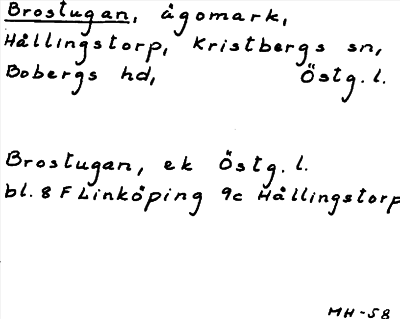 Brostugan, ågomark,
Hållingstorp, Kristbergs sn,
Bobergs hd, Östg. l.
Brostugan, ek Östg. l.
bl. 8 F Linköping 9c Hållingstorp
MH-58